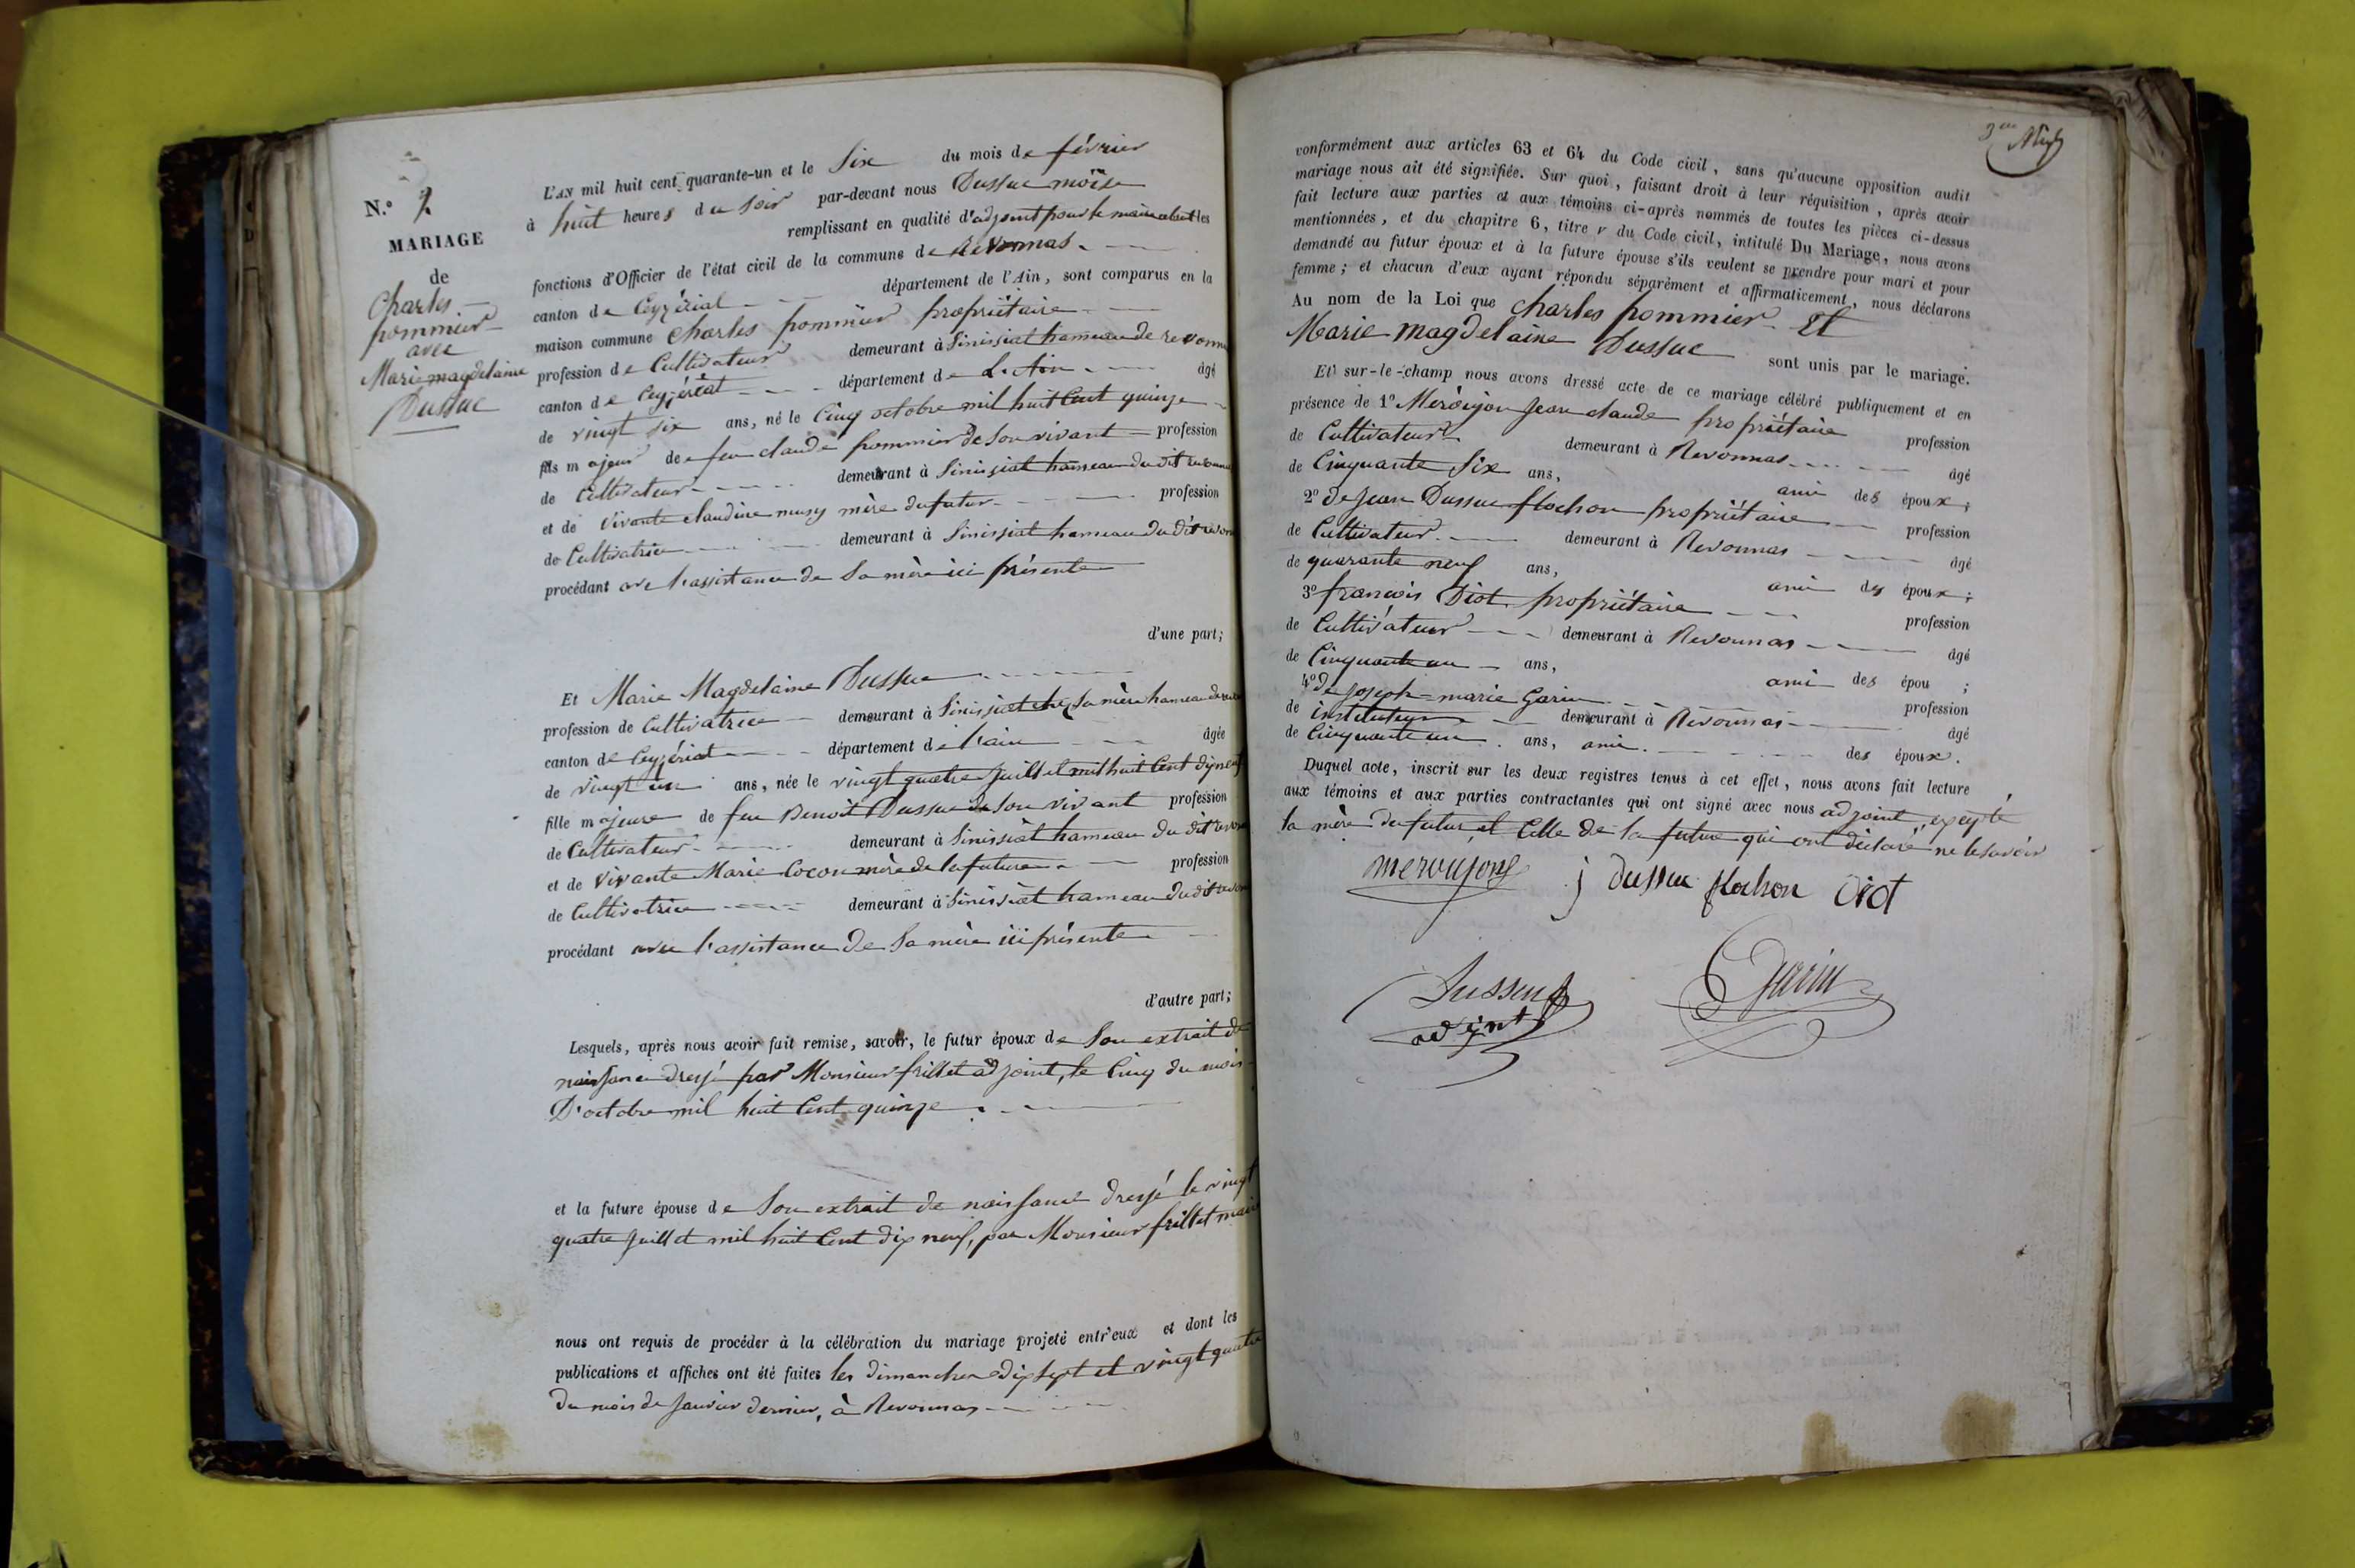 N.° 2
MARIAGE
de
Charles
pommier
avec
Marie magdelaine
Dussuc
L'AN mil huit cent quarante-un et le Six du mois de février
à huit heures du Soir par-devant nous Dussuc moïse
remplissant en qualité d'adjoint pour le maire absent les
fonctions d'Officier de l'état civil de la commune de Revonnas
canton de Ceyzériat département de l'Ain, sont comparus en la
maison commune Charles pommier propriétaire
profession de Cultivateur demeurant à Sinissiat hameau de revonn
canton de Ceyzériat département de L'Ain âgé
de vingt six ans, né le Cinq octobre mil huit Cent quinze
fils majeur de feu claude pommier de Son vivant profession
de Cultivateur demeurant à Sinissiat hameau du dit revonn
et de vivante claudine musy mère du futur profession
de Cultivatrice demeurant à Sinissiat hameau du dit revon
procédant avec l'assistance de Sa mère ici présente
d'une part;
Et Marie Magdelaine Dussuc
profession de Cultivatrice demeurant à Sinissiat chez Sa mère hameau de rev
canton de Ceyzériat département de l'ain âgée
de vingt un ans, née le vingt quatre Juillet mil huit Cent dix neuf
fille majeure de feu Benoit Dussuc de Son vivant profession
de Cultivateur demeurant à Sinissiat hameau du dit revon
et de vivante Marie Cocon mère de la future profession
de Cultivatrice demeurant à Sinissiat hameau du dit revon
procédant avec l'assistance de Sa mère ici présente
d'autre part;
Lesquels, après nous avoir fait remise, savoir, le futur époux de Son extrait de
naissance dressé par Monsieur frillet adjoint, le Cinq du mois
D'octobre mil huit Cent quinze
et la future épouse de Son extrait de naissance dressé le vingt
quatre Juillet mil huit Cent dix neuf, par Monsieur frillet mair
nous ont requis de procéder à la célébration du mariage projeté entr'eux et dont les
publications et affiches ont été faites les dimanches dix sept et vingt quatre
du mois de Janvier dernier, à Revonnas
conformément aux articles 63 et 64 du Code civil, sans qu'aucune opposition audit
mariage nous ait été signifiée. Sur quoi, faisant droit à leur réquisition, après avoir
fait lecture aux parties et aux témoins ci-après nommés de toutes les pièces ci-dessus
mentionnées, et du chapitre 6, titre v du Code civil, intitulé Du Mariage, nous avons
demandé au futur époux et à la future épouse s'ils veulent se prendre pour mari et pour
femme; et chacun d'eux ayant répondu séparément et affirmativement, nous déclarons
Au nom de la Loi que Charles pommier Et
Marie magdelaine Dussuc sont unis par le mariage.
Et sur-le-champ nous avons dressé acte de ce mariage célébré publiquement et en
présence de 1° Meroujon Jean claude propriétaire profession
de Cultivateur demeurant à Revonnas âgé
de Cinquante Six ans, ami des époux;
2° de Jean Dussuc flochon propriétaire profession
de Cultivateur demeurant à Revonnas âgé
de quarante neuf ans, ami des époux;
3° françois Diot propriétaire profession
de Cultivateur demeurant à Revonnas âgé
de Cinquante un ans, ami des épou ;
4° de Joseph marie Garin profession
de instituteur demeurant à Revonnas âgé
de Cinquante un ans, ami des époux.
Duquel acte, inscrit sur les deux registres tenus à cet effet, nous avons fait lecture
aux témoins et aux parties contractantes qui ont signé avec nous adjoint, excepté
la mère du futur, et Celle de la future qui ont déclaré ne le savoir
meroujong j dussuc flochon diot
Dussuc Garin
adjint